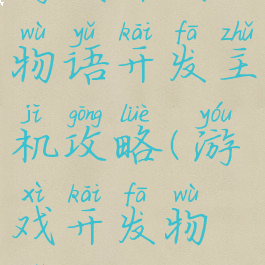 wù yǔ kāi fā zhǔ
物语开发主
jī gōng lüè yóu
机攻略(游
xì kāi fā wù
戏开发物